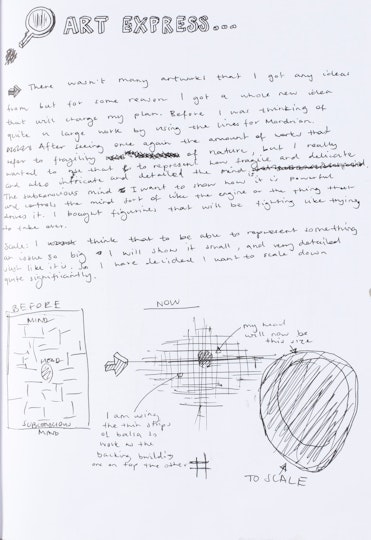 ART EXPRESS...
There wasn't many artworks that I got any ideas
from but for some reason I got a whole new idea
that will change my plan. Before I was thinking of
quite a large work by using the lines for
After seeing once again the amount of works that
refer to fragility of nature, but I really
wanted to get that to represent how fragile and delicate
and also intricate and detailed the mind is
The subconscious mind I want to show how it is powerful
and controls the mind sort of like the engine or the thing that
drives it. I bought figurines that will be fighting like trying
to take over.
Scale: I think that to be able to represent something
an issue so big I will show it small, and very detailed
like it is. So I have decided I want to scale down
quite significantly.
BEFORE
MIND
HEAD
SUBCONSCIOUS
MIND
NOW
my head
will now be
this size
I am using
the thin strips
of balsa to
work as the
backing building
one on top the other
TO SCALE